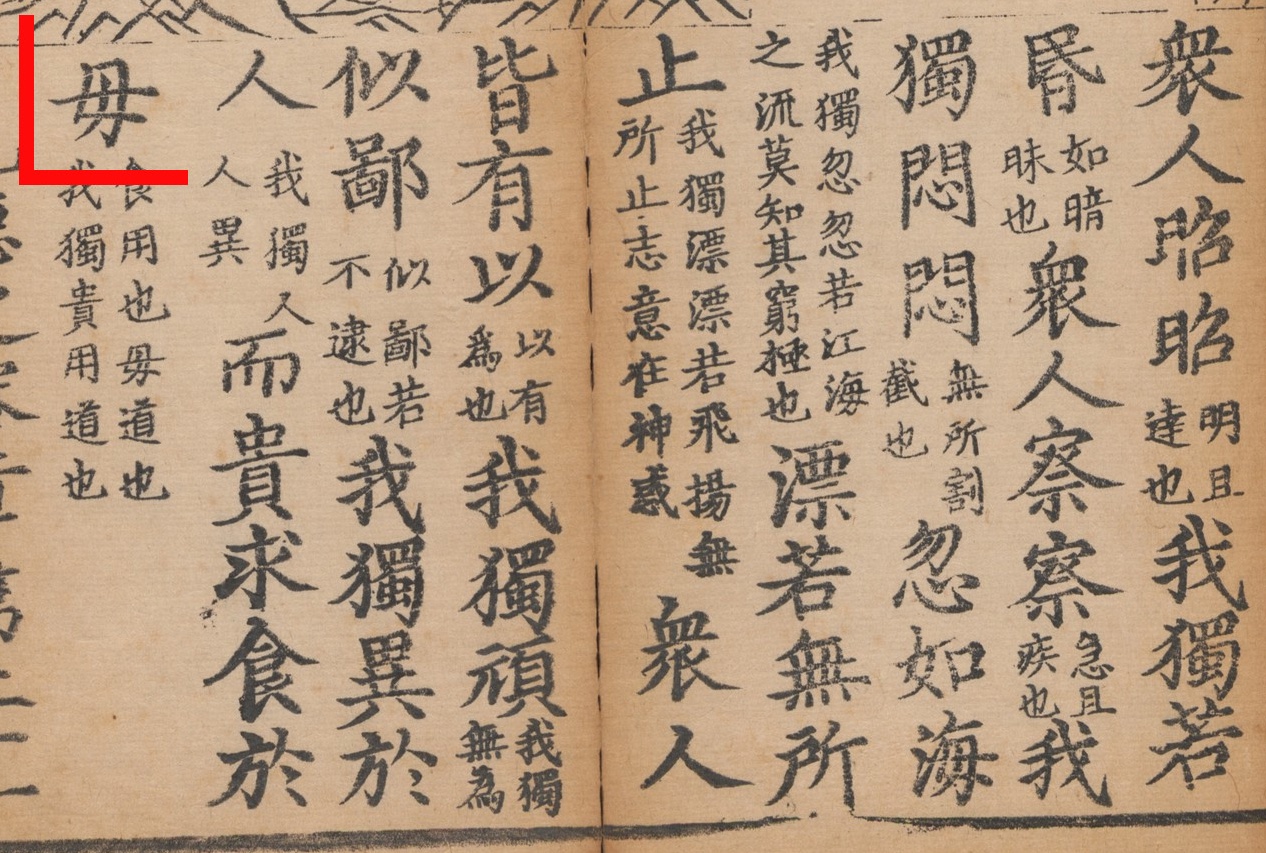 衆人昭昭明且達也我獨若
昬如暗昧也衆人察察急且疾也我
獨悶悶無所割截也忽如海
我獨忽忽若江海之流莫知其窮極也漂若無所
止我獨漂漂若飛揚無所止志意在神惑衆人
皆有以以有為也我獨頑我獨無為
似鄙似鄙若不逮也我獨異於
人我獨人人異而貴求食於
毋食用也毋道也我獨貴用道也